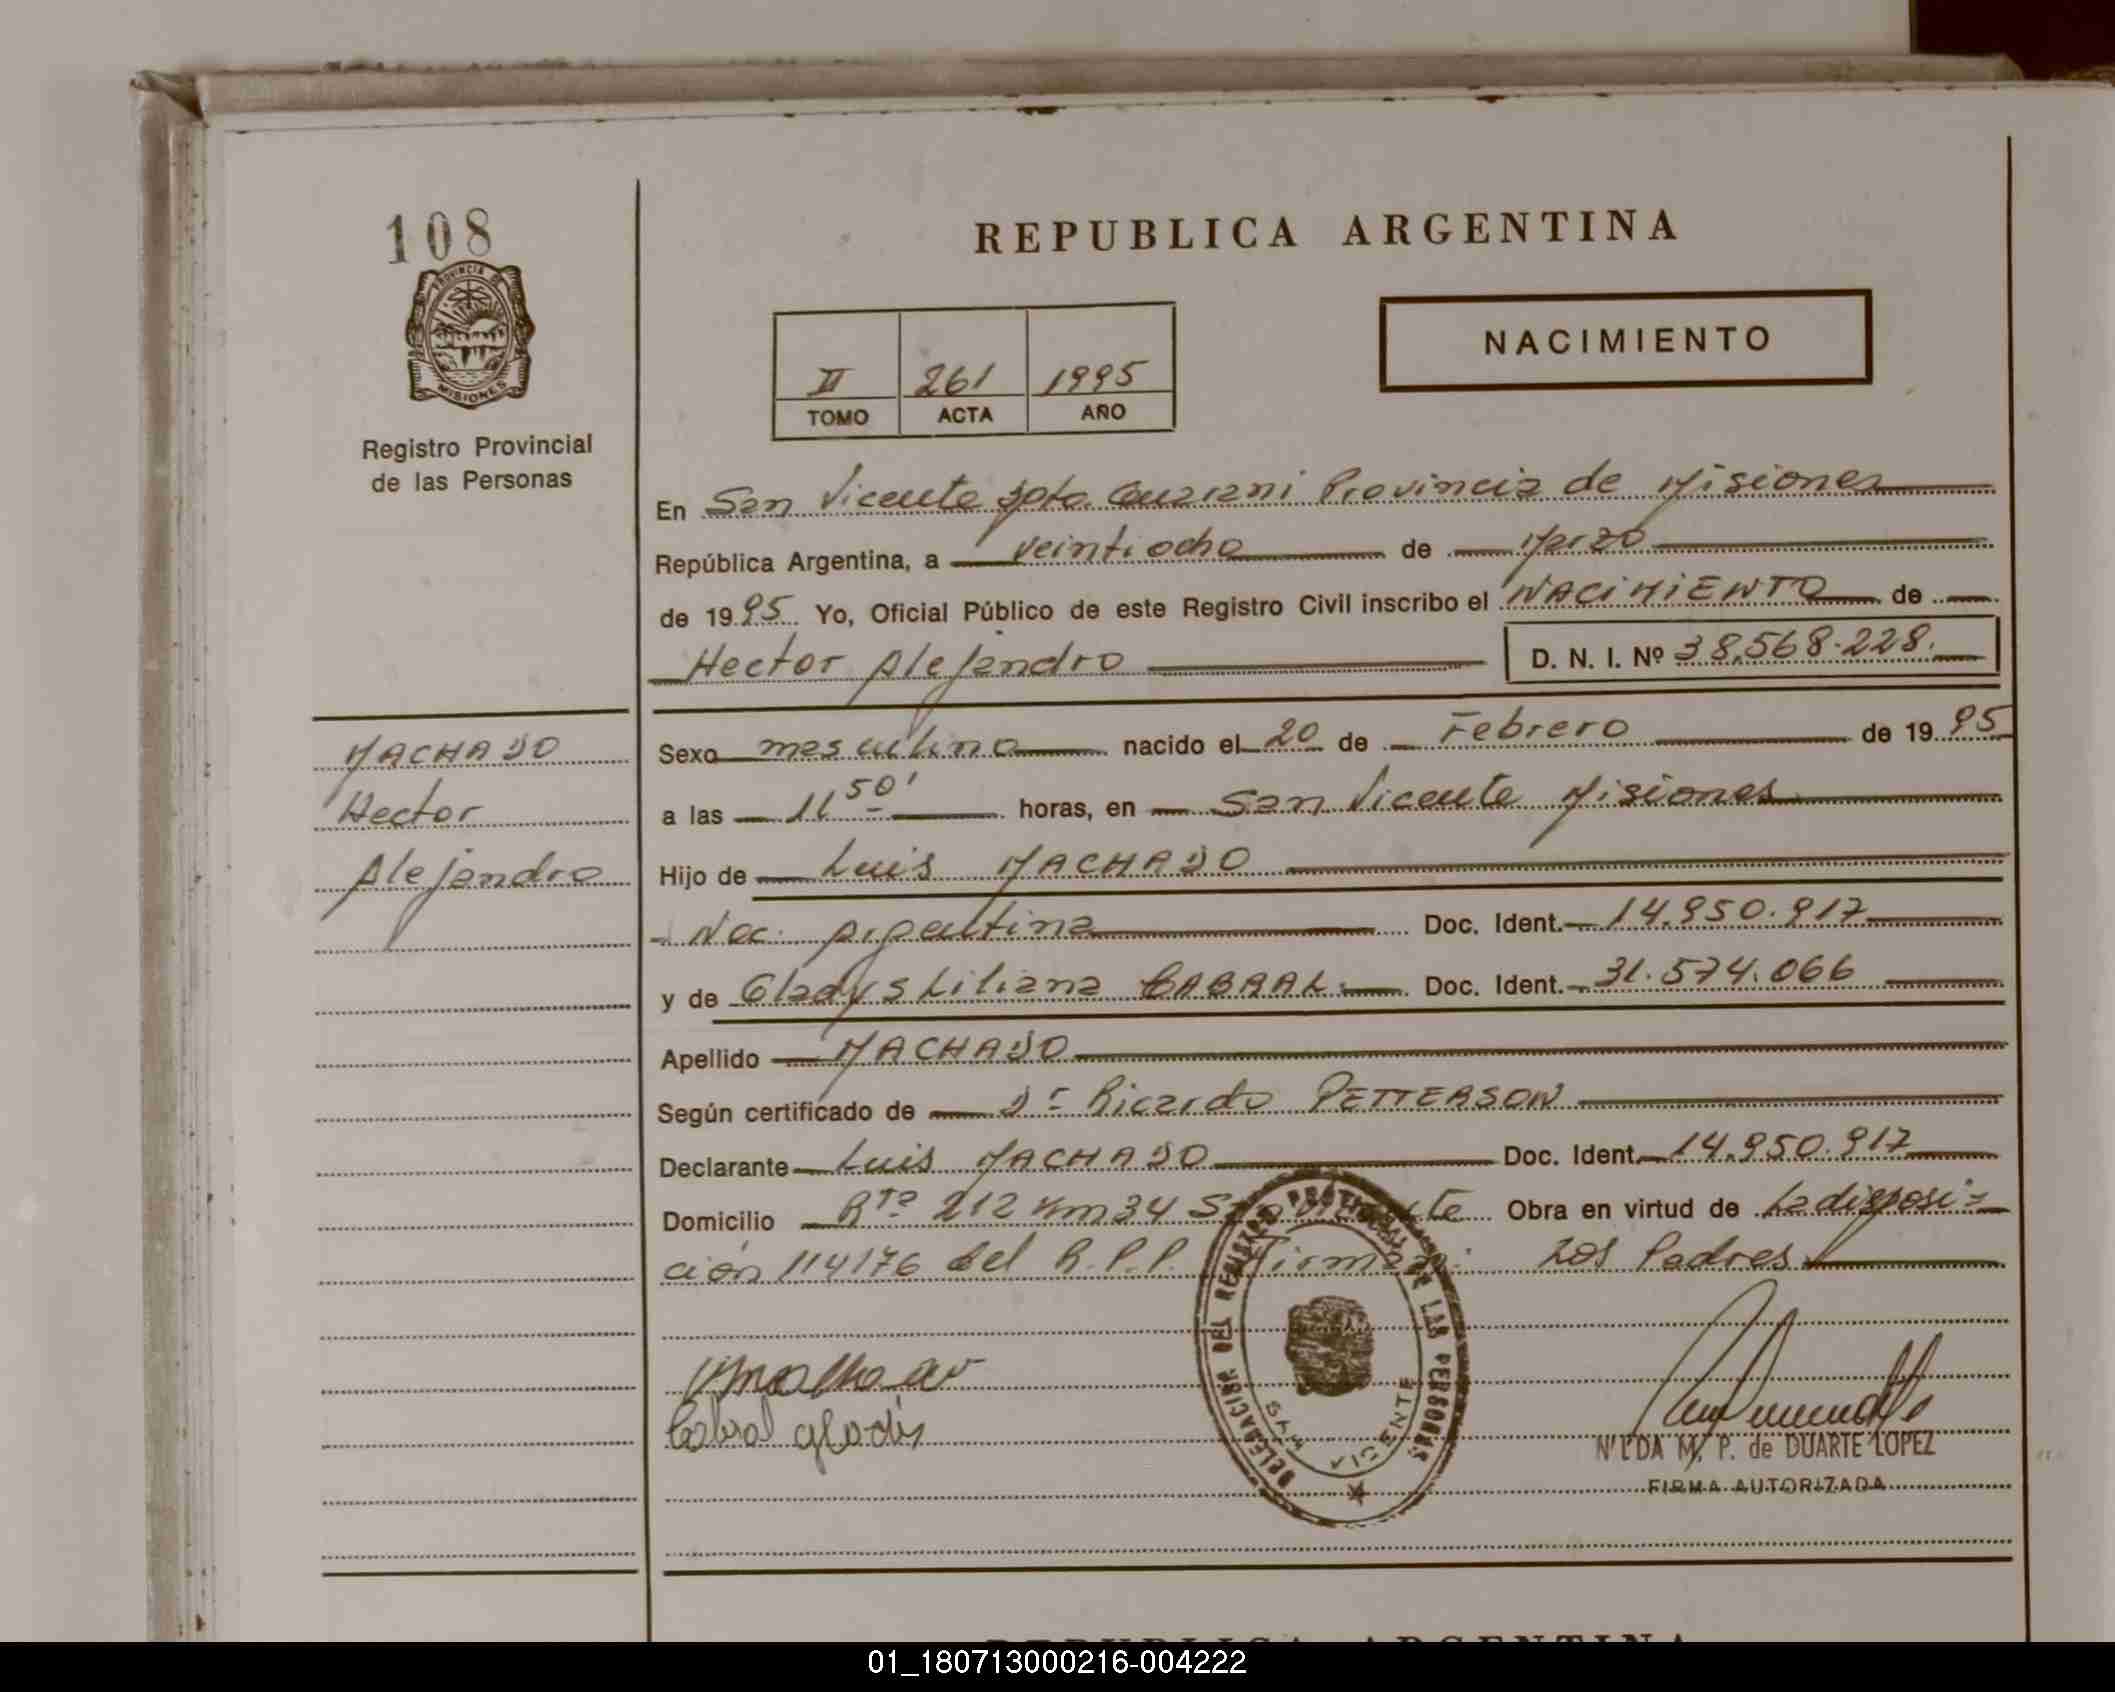 108
PROVINCIA DE
MISIONES
Registro Provincial
de las Personas
REPUBLICA ARGENTINA
NACIMIENTO
II 261 1995
TOMO ACTA AÑO
En San Vicente Dpto. Guarani Provincia de Misiones
República Argentina, a veintiocho de Marzo
de 1995 Yo, Oficial Público de este Registro Civil inscribo el NACIMIENTO de
Hector Alejandro D. N. I. Nº 38.568.228.
MACHADO
Hector
Alejandro
Sexo masculino nacido el 20 de Febrero de 1995
a las 11 50' horas, en San Vicente Misiones
Hijo de Luis MACHADO
Nac. Argentina Doc. Ident. 14.950.917
y de Gladys Liliana CABRAL. Doc. Ident. 31.574.066
Apellido MACHADO
Según certificado de Dr Ricardo PETTERSON
Declarante Luis MACHADO Doc. Ident. 14.950.917
Domicilio Rta 212 Km 34 San Vicente Obra en virtud de La disposi=
ción 114176 del R.P.P. Firman: Los Padres
Cabral gladis
DELEGACION DEL REGISTRO PROVINCIAL DE LAS PERSONAS
SAN VICENTE
NILDA M. P. de DUARTE LOPEZ
FIRMA AUTORIZADA
REPUBLICA ARGENTINA
01_180713000216-004222